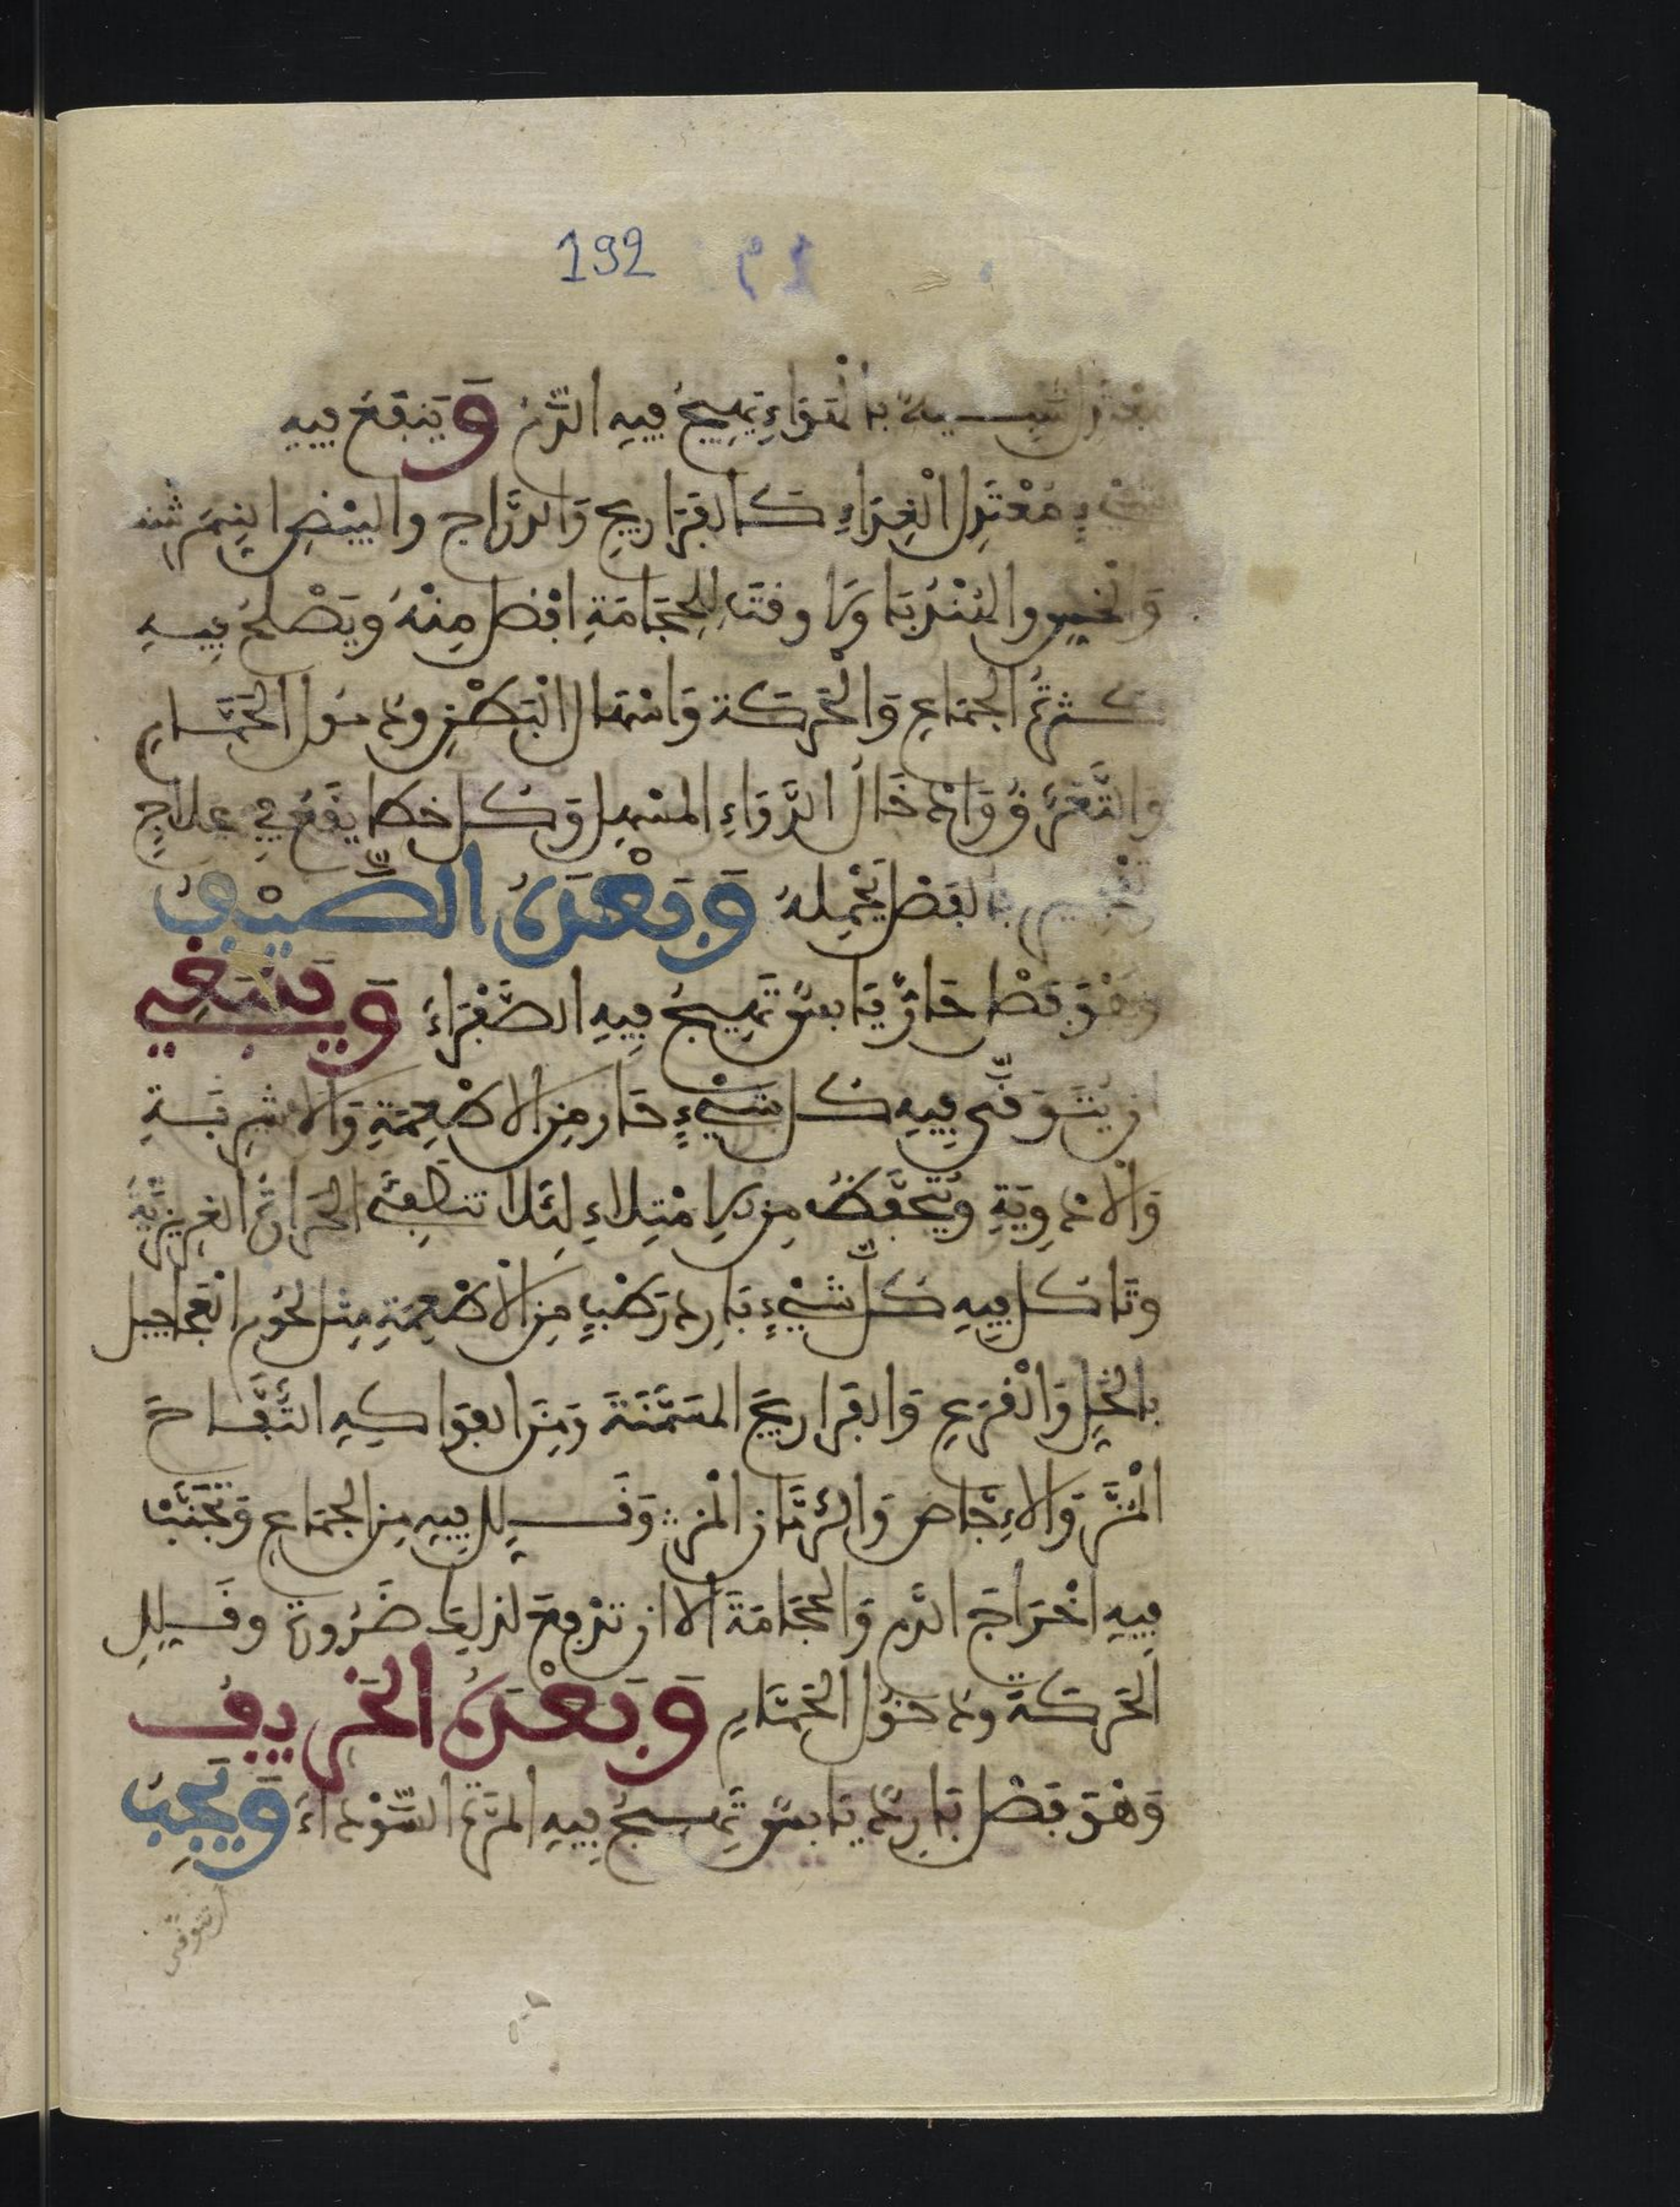 192
معتدل شبيه بالهواء يهيج فيه الدم وينفع فيه
شيء معتدل الغذاء كالفراريج والدراج والبيض النيمرشت
والخس والهندبا ولا وقت للحجامة افضل منه ويصلح فيه
كثرة الجماع والحركة واسهال البطن ودخول الحمام
والتعرق واخذ الدواء المسهل وكل خطا يقع في علاج
بالفصل يحمله وبعده الصيف
وهو فصل حار يابس تهيج فيه الصفراء وينبغي
ان يتوقى فيه كل شيء حار من الاطعمة والاشربة
والادوية ويتحفظ من الامتلاء لئلا تنطفئ الحرارة الغريزية
وتاكل فيه كل شيء بارد رطب من الاطعمة مثل لحوم العجاجيل
بالخل والقرع والفراريج المسمنة ومن الفواكه التفاح
المز والاجاص والرمان المز وقلل فيه من الجماع وتجنب
فيه اخراج الدم والحجامة الا ان تدفع لذلك ضرورة وقلل
الحركة ودخول الحمام وبعده الخريف
وهو فصل بارد يابس تهيج فيه المرة السوداء ويجب
ان تتوقى